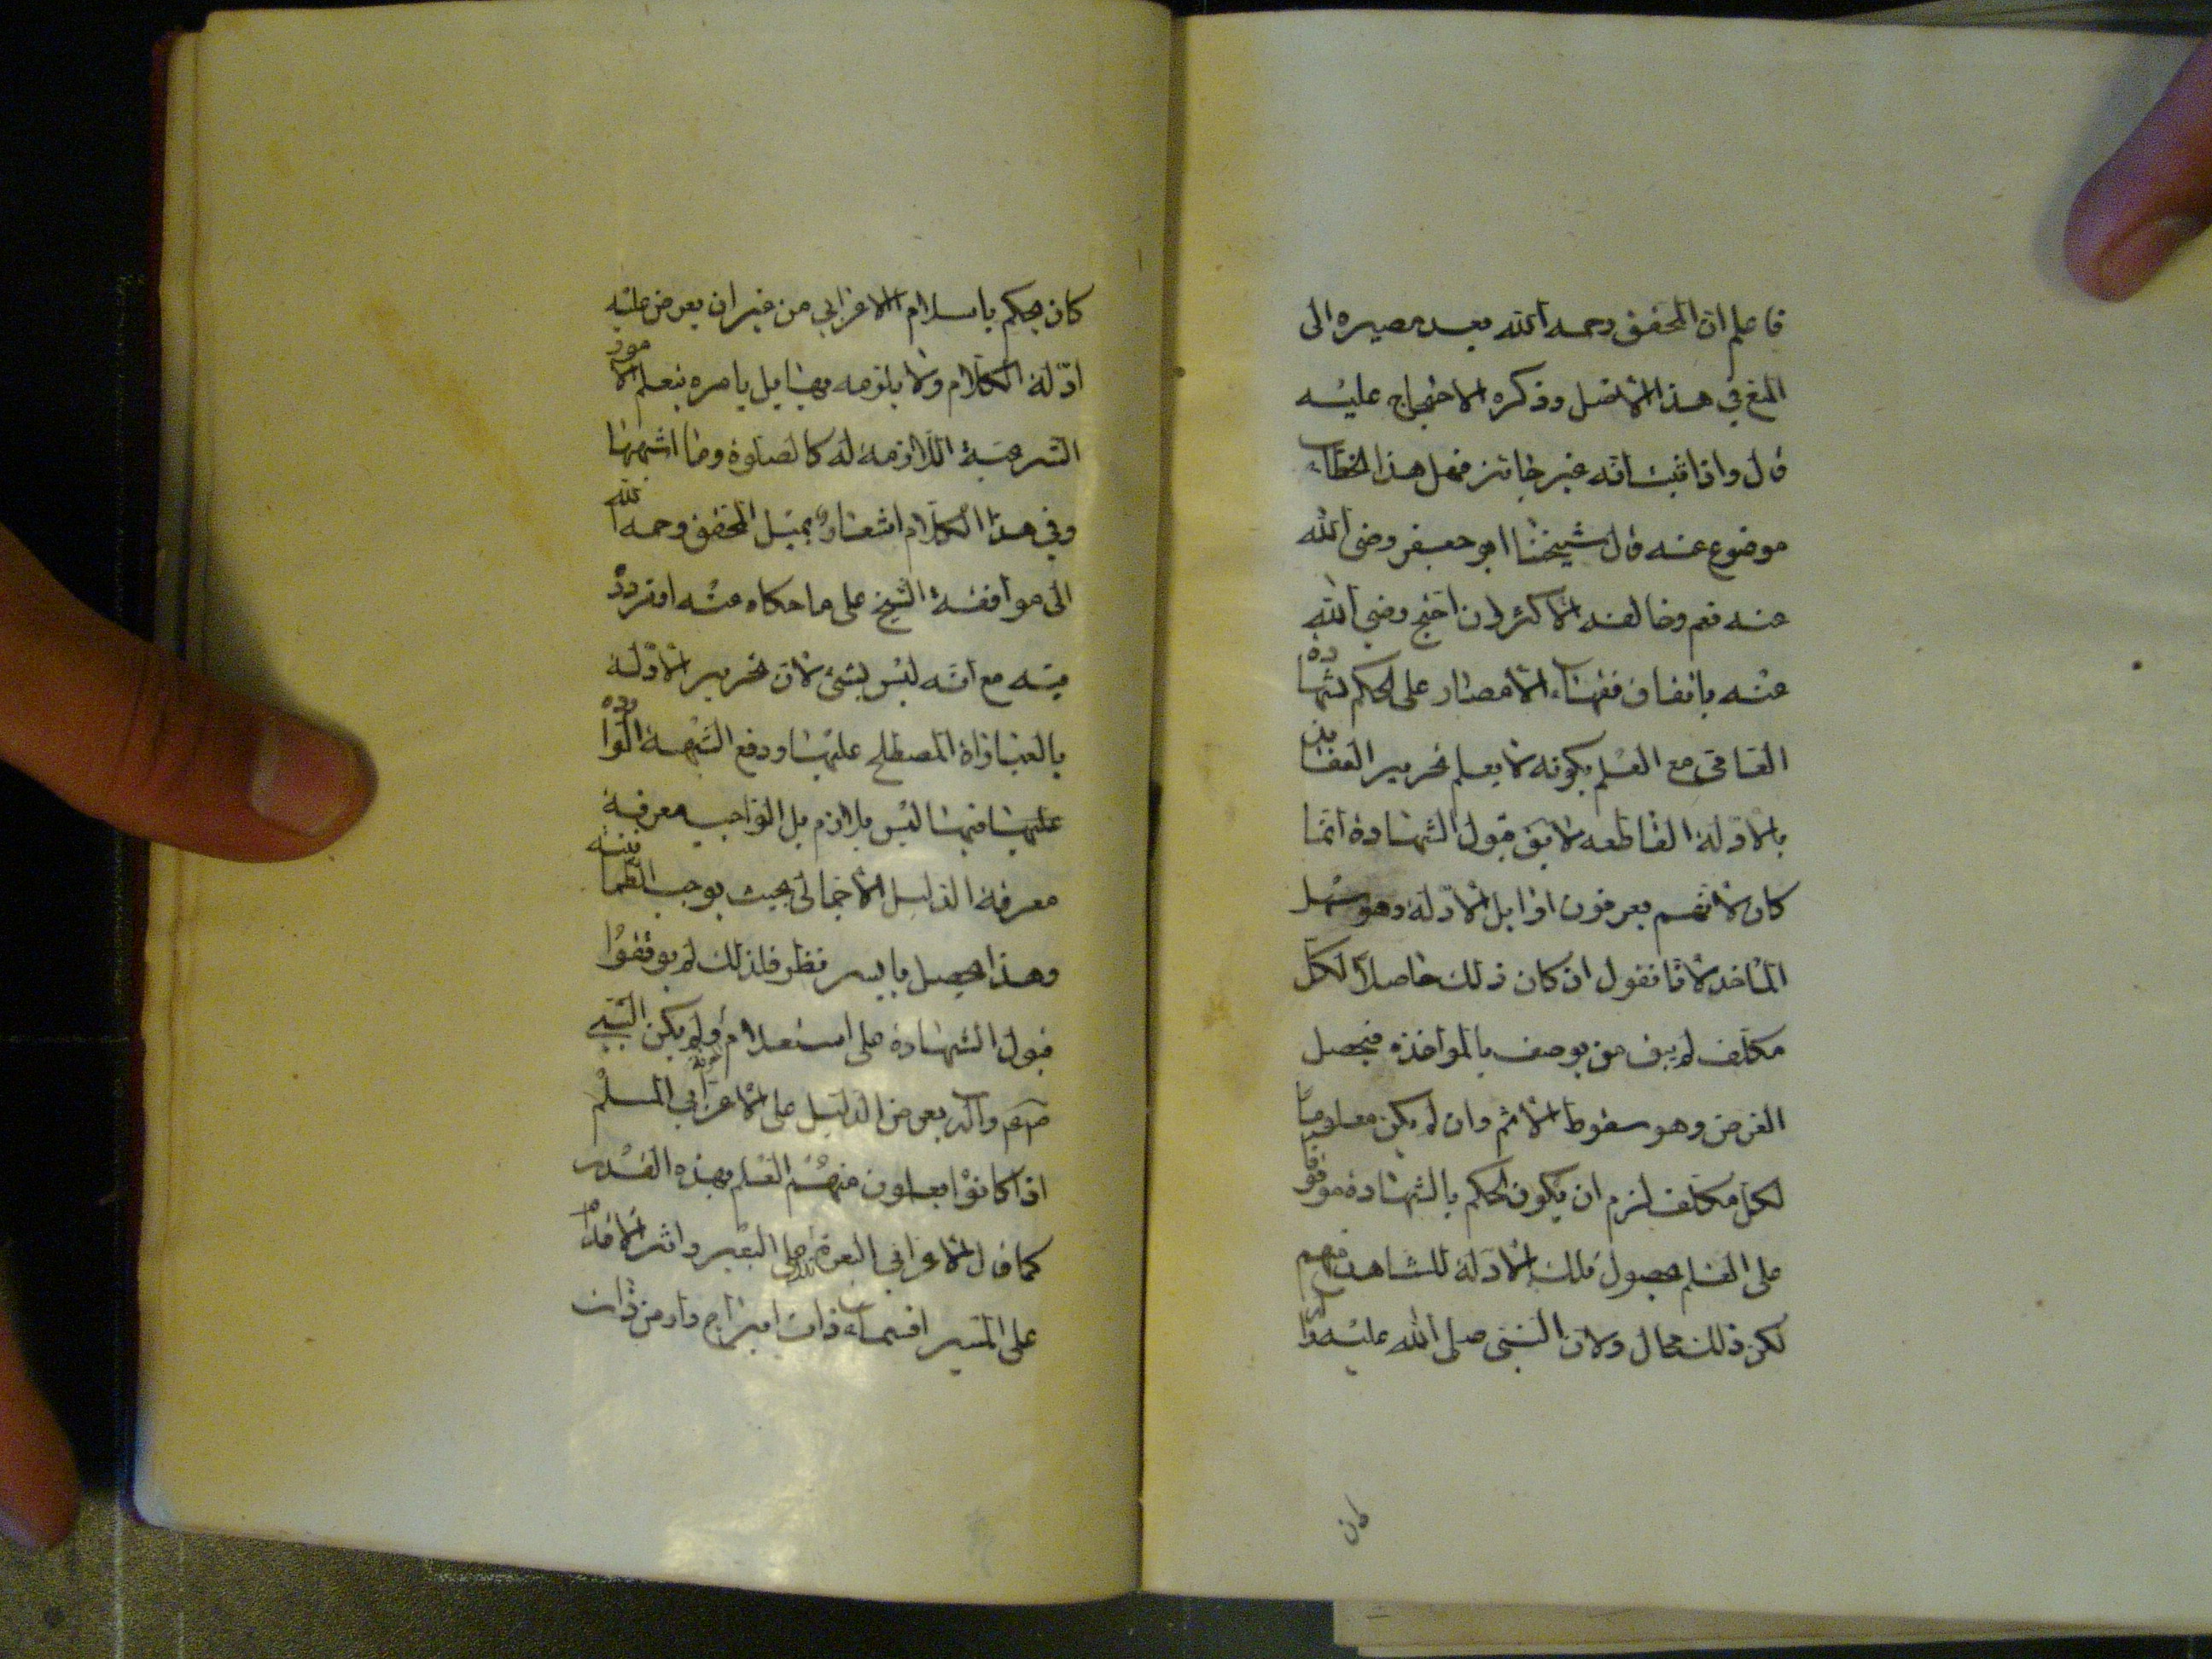 فاعلم ان المحقق رحمه الله بعد مصيره الى
المنع في هذا الاصل وذكره الاحتجاج عليه
قال واذا ثبت انه غير جائز فهل هذا الخطاء
موضوع عنه قال شيخنا ابو جعفر رضى الله
عنه نعم وخالفه الاكثرون احتج رضي الله
عنه باتفاق فقهاء الامصار على الحكم بشهادة
العامى مع العلم بكونه لا يعلم تحرير العقايد
بالادلة القاطعه لا يق قبول الشهادة انما
كان لانهم يعرفون اوايل الادلة وهو سهل
المأخذ لانا نقول ان كان ذلك حاصلا لكل
مكلف لم يبق من يوصف بالمؤاخذه فيحصل
الغرض وهو سقوط الاثم وان لم يكن معلوما
لكل مكلف لزم ان يكون الحكم بالشهادة موقوفا
على العلم بحصول تلك الادلة للشاهد منهم
لكن ذلك محال ولان النبى صلى الله عليه وآله
كان
كان يحكم باسلام الاعرابي من غير ان يعرض عليه
ادلة الكلام ولا يلزمه بها بل يامره بتعلم الامور
الشرعية اللازمة له كالصلوة وما اشبهها
وفي هذا الكلام اشعار بميل المحقق رحمه الله
الى موافقة الشيخ على ما حكاه عنه او تردد
فيه مع انه ليس بشئ لان تحرير الادلة
بالعبارات المصطلح عليها ودفع الشبهة الواردة
عليها فيها ليس بلازم بل الواجب معرفة
معرفة الدليل الاجمالى بحيث يوجب الطمانينة
وهذا يحصل بايسر نظر فلذلك لم يوقفوا
قبول الشهادة على استعلام ولم يكن النبي
صلعم وآله يعرض الدليل على الاعرابي المسلم
اذ كانوا يعلمون منهم العلم بهذه القدر
كما قال الاعرابي البعرة تدل على البعير واثر الاقدام
على المسير افسماء ذات ابراج وارض ذات